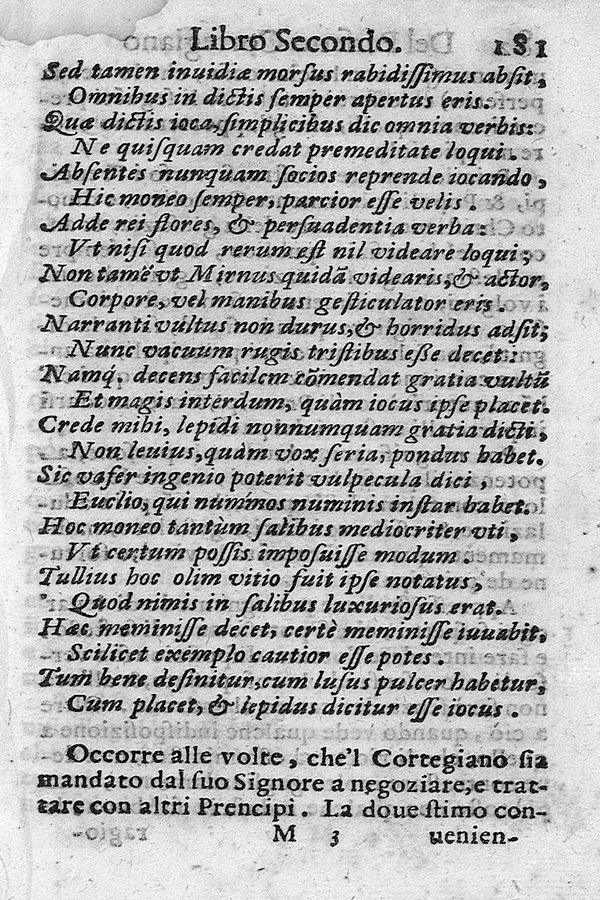 Libro Secondo. 181
Sed tamen inuidiæ morsus rabidissimus absit,
Omnibus in dictis semper apertus eris.
Quæ dictis ioca, simplicibus dic omnia verbis:
Ne quisquam credat premeditate loqui.
Absentes nunquam socios reprende iocando,
Hic moneo semper, parcior esse velis.
Adde rei flores, & persuadentia verba:
Vt nisi quod rerum est nil videare loqui;
Non tamẽ vt Mirnus quidã videaris, & actor,
Corpore, vel manibus gesticulator eris.
Narranti vultus non durus, & horridus adsit;
Nunc vacuum rugis tristibus esse decet:
Namq́. decens facilem cõmendat gratia vultũ
Et magis interdum, quàm iocus ipse placet.
Crede mihi, lepidi nonnumquam gratia dicti,
Non leuius, quàm vox seria, pondus habet.
Sic vafer ingenio poterit vulpecula dici,
Euclio, qui nummos numinis instar habet.
Hoc moneo tantùm salibus mediocriter vti,
Vt certum possis imposuisse modum.
Tullius hoc olim vitio fuit ipse notatus,
Quod nimis in salibus luxuriosus erat.
Hæc meminisse decet, certè meminisse iuuabit,
Scilicet exemplo cautior esse potes.
Tum bene definitur, cum lusus pulcer habetur,
Cum placet, & lepidus dicitur esse iocus.
Occorre alle volte, che'l Cortegiano sia
mandato dal suo Signore a negoziare, e trat-
tare con altri Prencipi. La doue stimo con-
M 3 uenien-